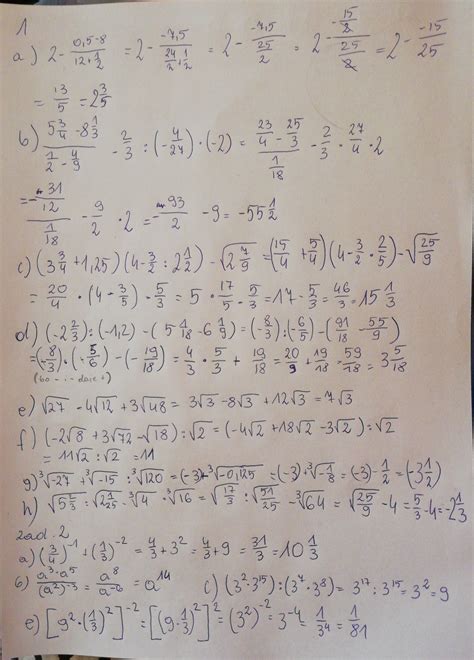 1
a) 2 - (0,5-8)/(12+1/2) = 2 - (-7,5)/(24/2+1/2) = 2 - (-7,5)/(25/2) = 2 - (-15/2)/(25/2) = 2 - (-15)/25
= 13/5 = 2 3/5
b) (5 3/4 - 8 1/3)/(1/2 - 4/9) - 2/3 : (-4/27) · (-2) = (23/4 - 25/3)/(1/18) - 2/3 · 27/4 · 2
= (-31/12)/(1/18) - 9/2 · 2 = -93/2 - 9 = -55 1/2
c) (3 3/4 + 1,25)(4 - 3/2 : 2 1/2) - √(2 7/9) = (15/4 + 5/4)(4 - 3/2 · 2/5) - √(25/9)
= 20/4 · (4 - 3/5) - 5/3 = 5 · 17/5 - 5/3 = 17 - 5/3 = 46/3 = 15 1/3
d) (-2 2/3) : (-1,2) - (5 1/18 - 6 1/9) = (-8/3) : (-6/5) - (91/18 - 55/9)
= (-8/3) · (-5/6) - (-19/18) = 4/3 · 5/3 + 19/18 = 20/9 + 19/18 = 59/18 = 3 5/18
(bo - i - daje +)
e) √27 - 4√12 + 3√48 = 3√3 - 8√3 + 12√3 = 7√3
f) (-2√8 + 3√72 - √18) : √2 = (-4√2 + 18√2 - 3√2) : √2
= 11√2 : √2 = 11
g) ³√-27 + ³√-15 : ³√120 = (-3) + ³√-0,125 = (-3) + ³√-1/8 = (-3) - 1/2 = (-3 1/2)
h) √(5 2/3) : √(2 1/25) - ³√4 · ³√16 = √(17/3) : √(51/25) - ³√64 = √(25/9) - 4 = 5/3 - 4 = -2 1/3
zad. 2
a) (3/4)⁻¹ + (1/3)⁻² = 4/3 + 3² = 4/3 + 9 = 31/3 = 10 1/3
b) (a³ · a⁵)/(a²)⁻³ = a⁸/a⁻⁶ = a¹⁴ c) (3² · 3¹⁵) : (3⁷ · 3⁸) = 3¹⁷ : 3¹⁵ = 3² = 9
e) [9² · (1/3)²]⁻² = [(9 · 1/3)²]² = (3²)⁻² = 3⁻⁴ = 1/3⁴ = 1/81